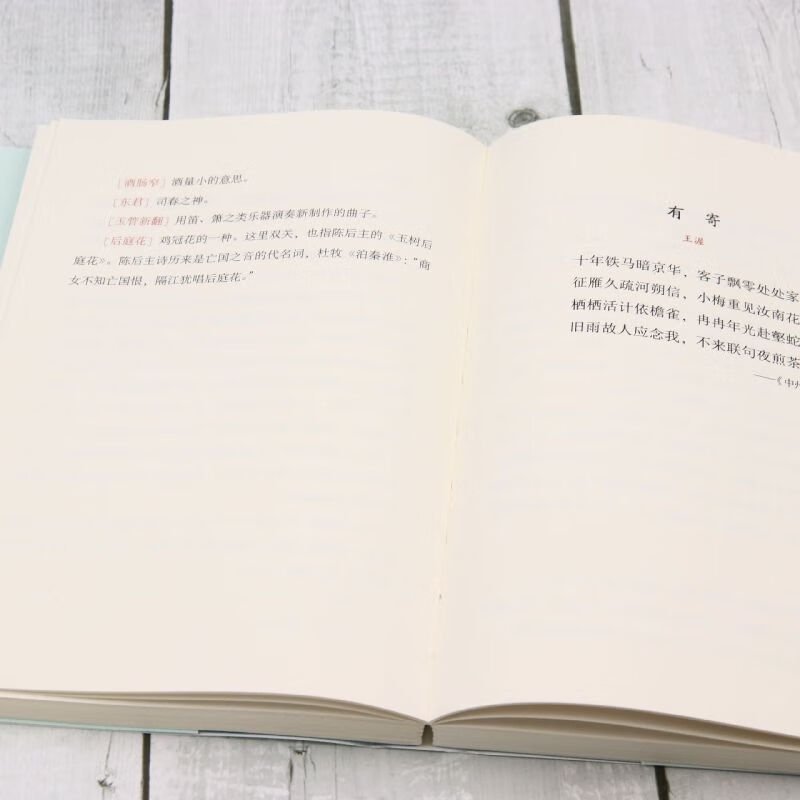 [酒肠窄] 酒量小的意思。
[东君] 司春之神。
[玉管新翻] 用笛、箫之类乐器演奏新制作的曲子。
[后庭花] 鸡冠花的一种。这里双关，也指陈后主的《玉树后
庭花》。陈后主诗历来是亡国之音的代名词，杜牧《泊秦淮》：“商
女不知亡国恨，隔江犹唱后庭花。”
有寄
王渥
十年铁马暗京华，客子飘零处处家
征雁久疏河朔信，小梅重见汝南花
栖栖活计依檐雀，冉冉年光赴壑蛇
旧雨故人应念我，不来联句夜煎茶
——《中州